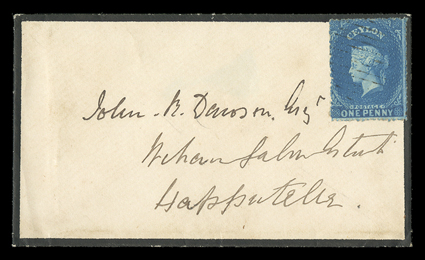 CEYLON
POSTAGE
ONE PENNY
John R. Dawson, Esqr
Estate
Happutella.